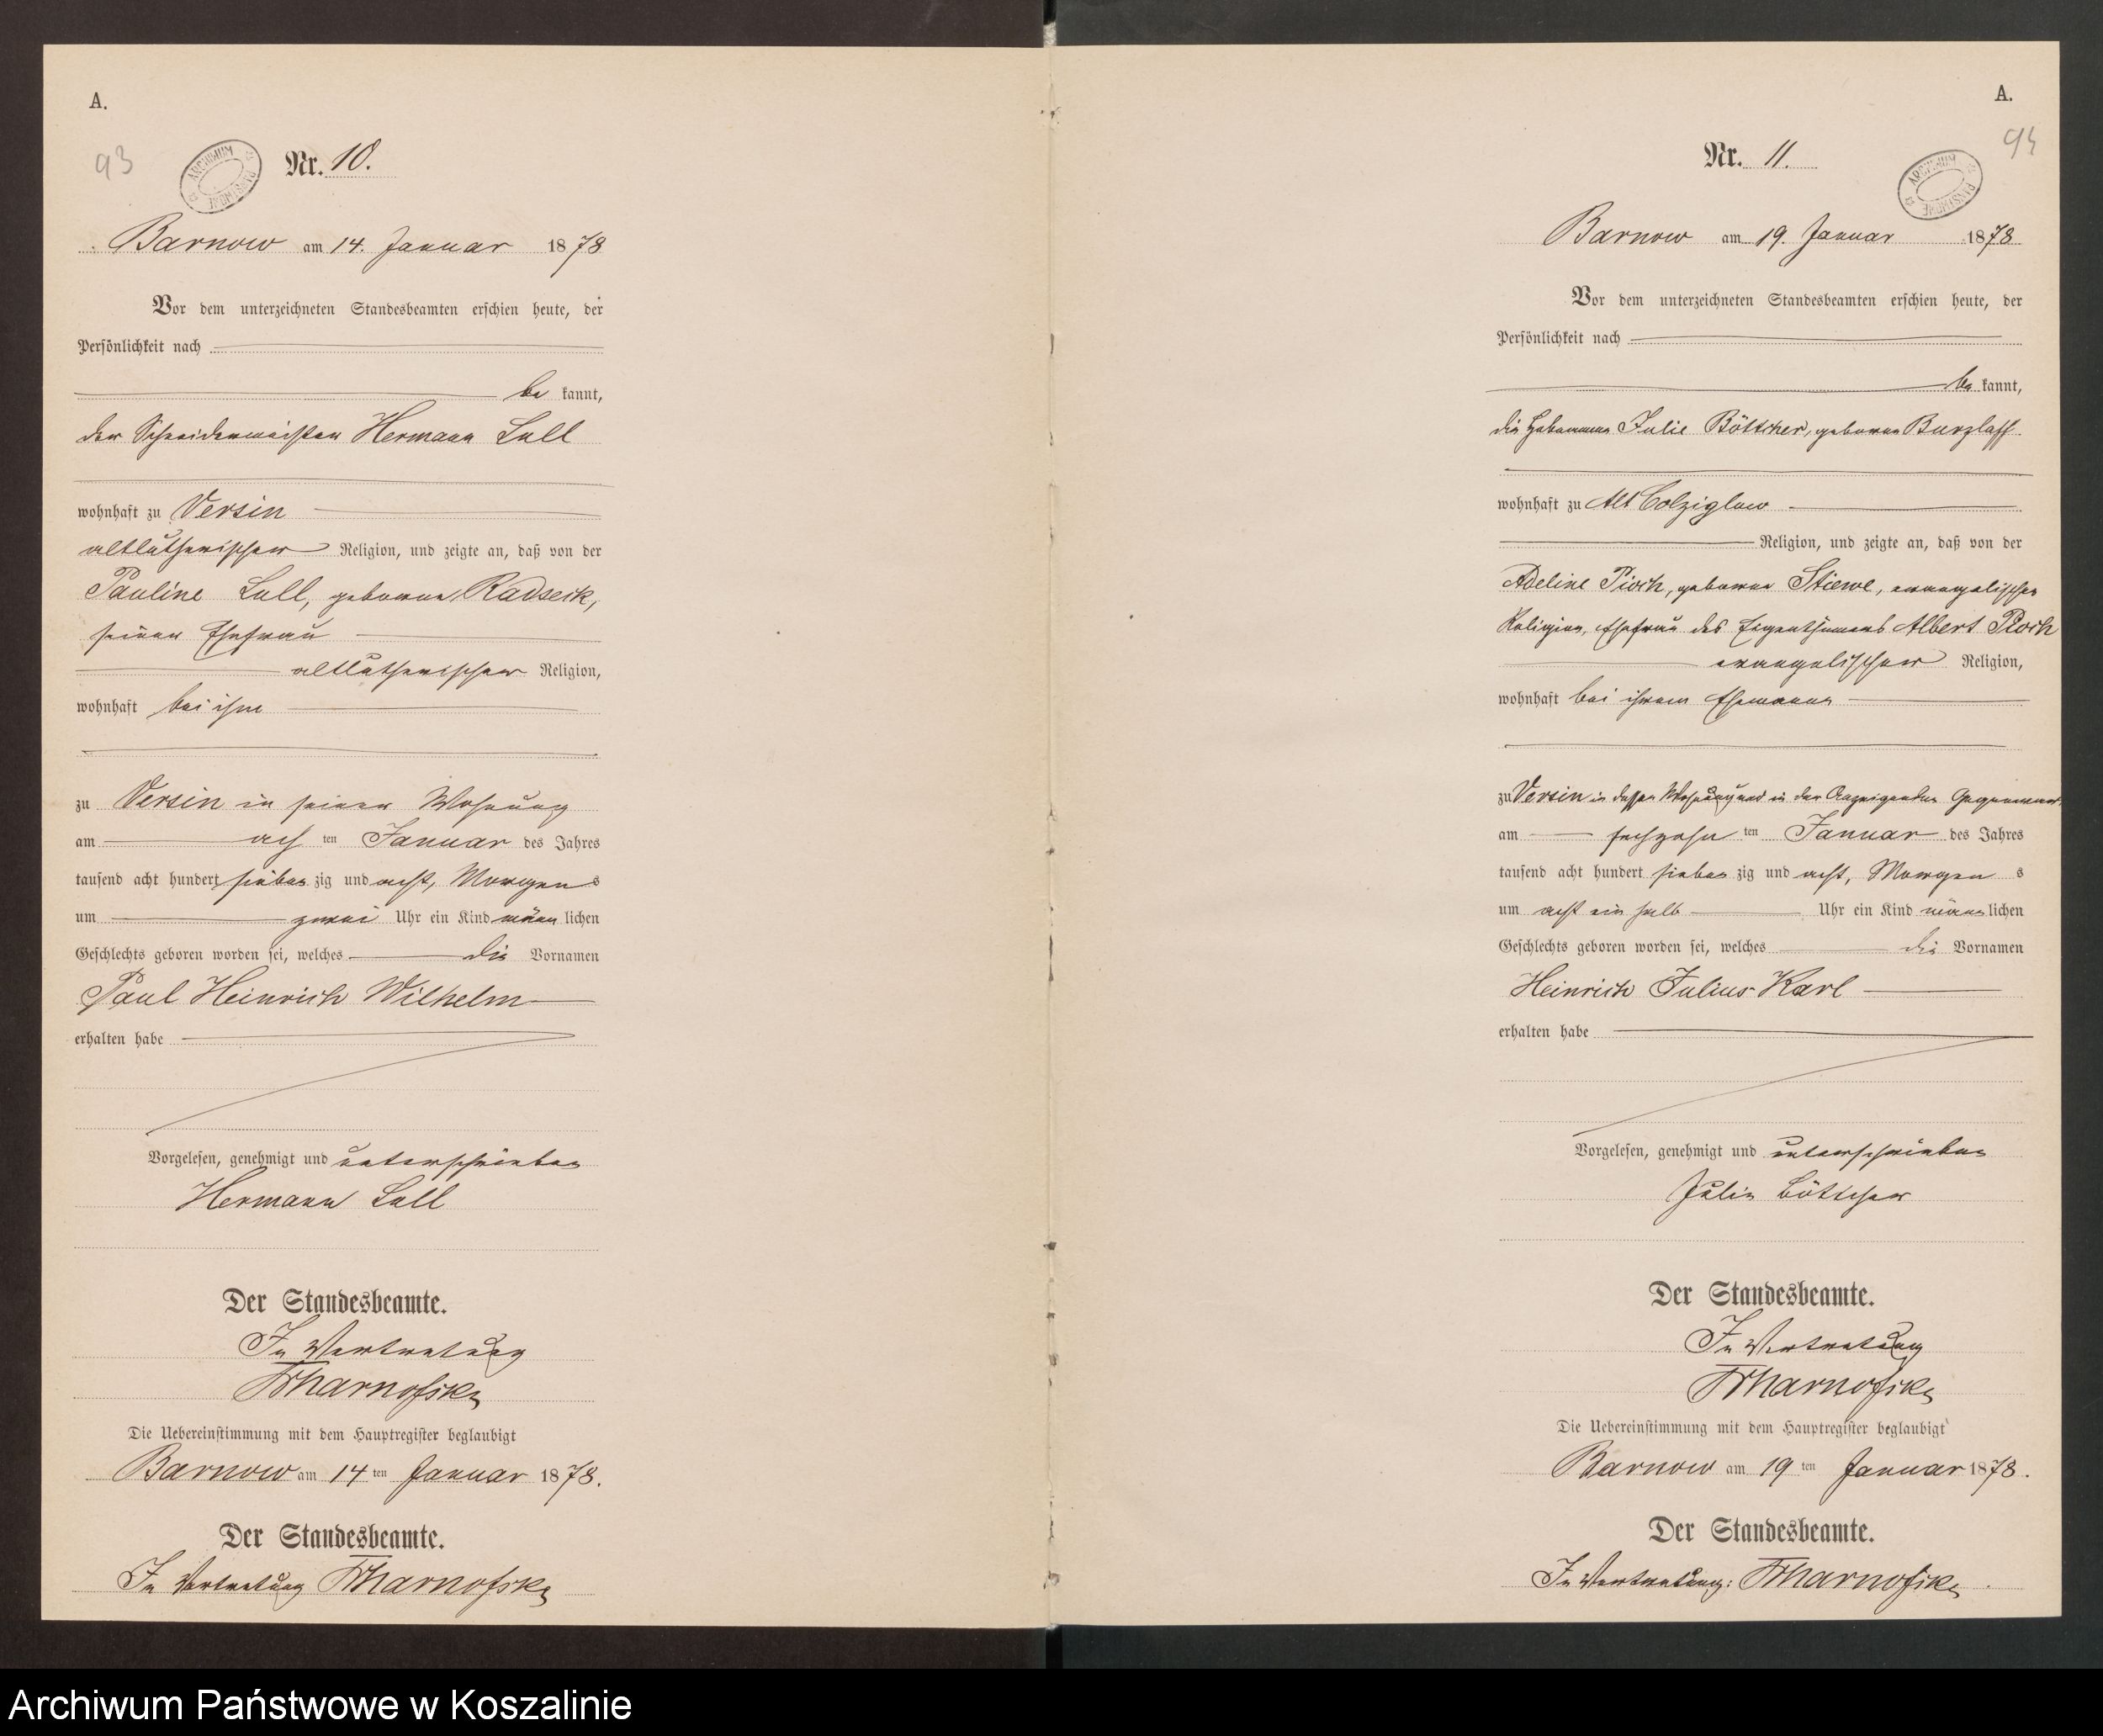 A.
93
ARCHIWUM PAŃSTWOWE
Nr. 10.
Barnow am 14. Januar 1878
Vor dem unterzeichneten Standesbeamten erschien heute, der
Persönlichkeit nach
be kannt,
der Schneidermeister Hermann Lull
wohnhaft zu Versin
altlutherischer Religion, und zeigte an, daß von der
Pauline Lull, geborne Radseck,
seiner Ehefrau
altlutherischer Religion,
wohnhaft bei ihm
zu Versin in seiner Wohnung
am ach ten Januar des Jahres
tausend acht hundert sieben zig und acht, Morgen s
um zwei Uhr ein Kind männ lichen
Geschlechts geboren worden sei, welches die Vornamen
Paul Heinrich Wilhelm
erhalten habe
Vorgelesen, genehmigt und unterschrieben
Hermann Lull
Der Standesbeamte.
In Vertretung
Die Uebereinstimmung mit dem Hauptregister beglaubigt
Barnow am 14 ten Januar 1878.
Der Standesbeamte.
In Vertretung
A.
94
ARCHIWUM PAŃSTWOWE
Nr. 11.
Barnow am 19. Januar 1878
Vor dem unterzeichneten Standesbeamten erschien heute, der
Persönlichkeit nach
be kannt,
die Hebamme Julie Böttcher, geborne Burzlaff
wohnhaft zu Alt Colziglow
Religion, und zeigte an, daß von der
Adeline Pioch, geborne Stiewe, evangelischer
Religion, Ehefrau des Eigenthümers Albert Pioch
evangelischer Religion,
wohnhaft bei ihrem Ehemanne
zu Versin in dessen Wohnung und in der Anzeigenden Gegenwart
am sechzehn ten Januar des Jahres
tausend acht hundert sieben zig und acht, Morgen s
um acht ein halb Uhr ein Kind männ lichen
Geschlechts geboren worden sei, welches die Vornamen
Heinrich Julius Karl
erhalten habe
Vorgelesen, genehmigt und unterschrieben
Julie Böttcher
Der Standesbeamte.
In Vertretung
Die Uebereinstimmung mit dem Hauptregister beglaubigt
Barnow am 19 ten Januar 1878.
Der Standesbeamte.
In Vertretung:
Archiwum Państwowe w Koszalinie